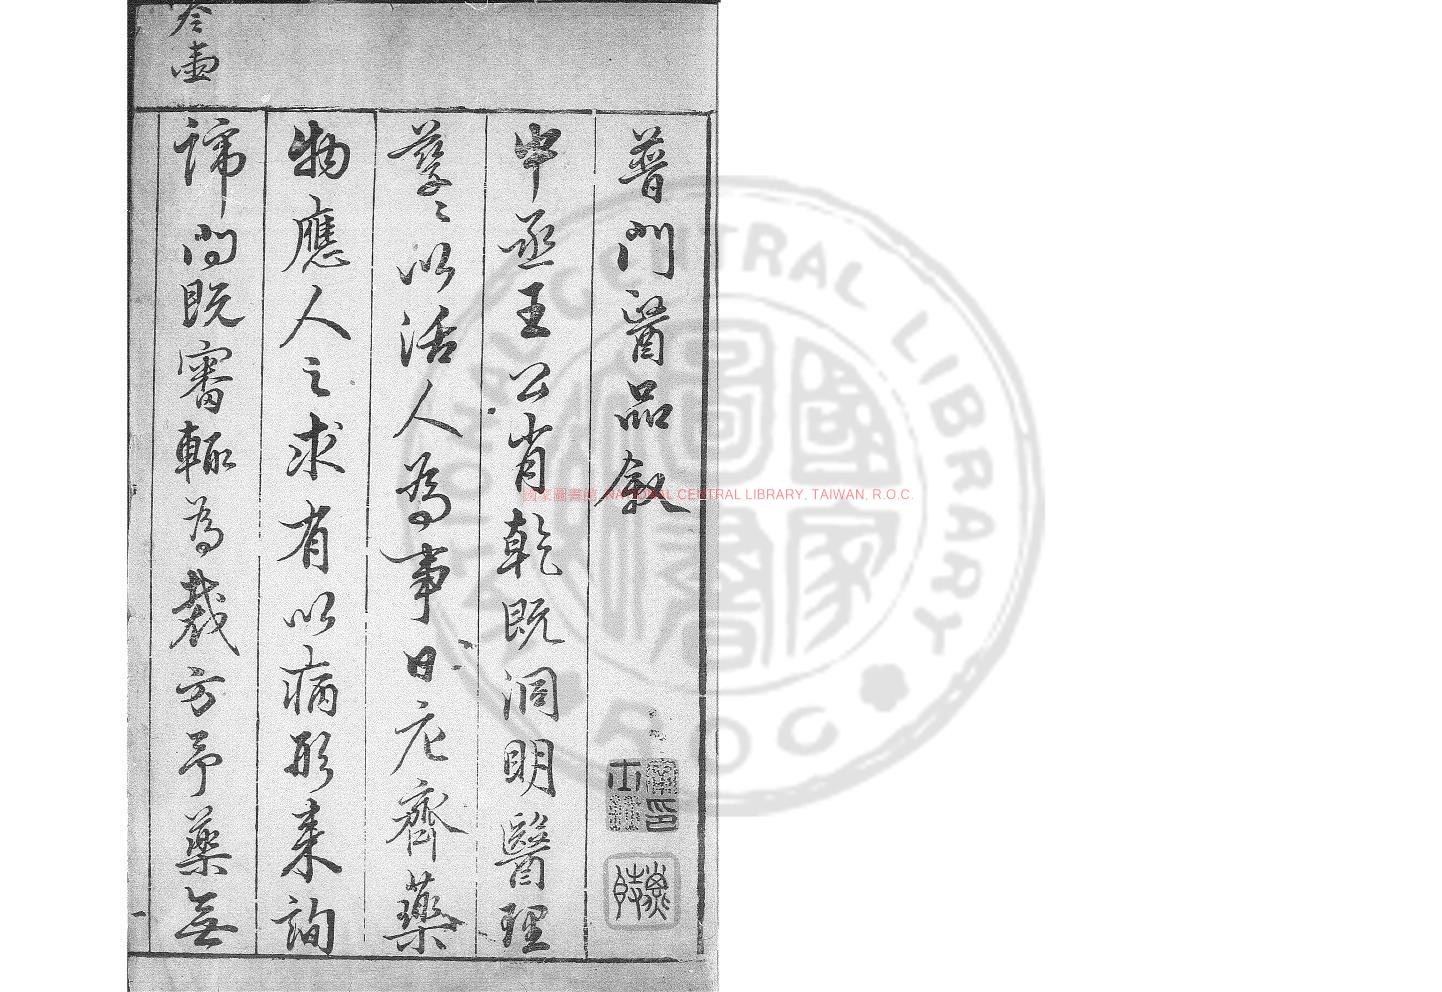 普門醫品敘
中丞王公肖乾既洞明醫理
孳〻以活人為事日庀齊藥
物應人之求有以病形來詢
諦問既審輒為裁方予藥無
一
國家圖書館 NATIONAL CENTRAL LIBRARY, TAIWAN, R.O.C.
NATIONAL CENTRAL LIBRARY
ROC
國家圖書